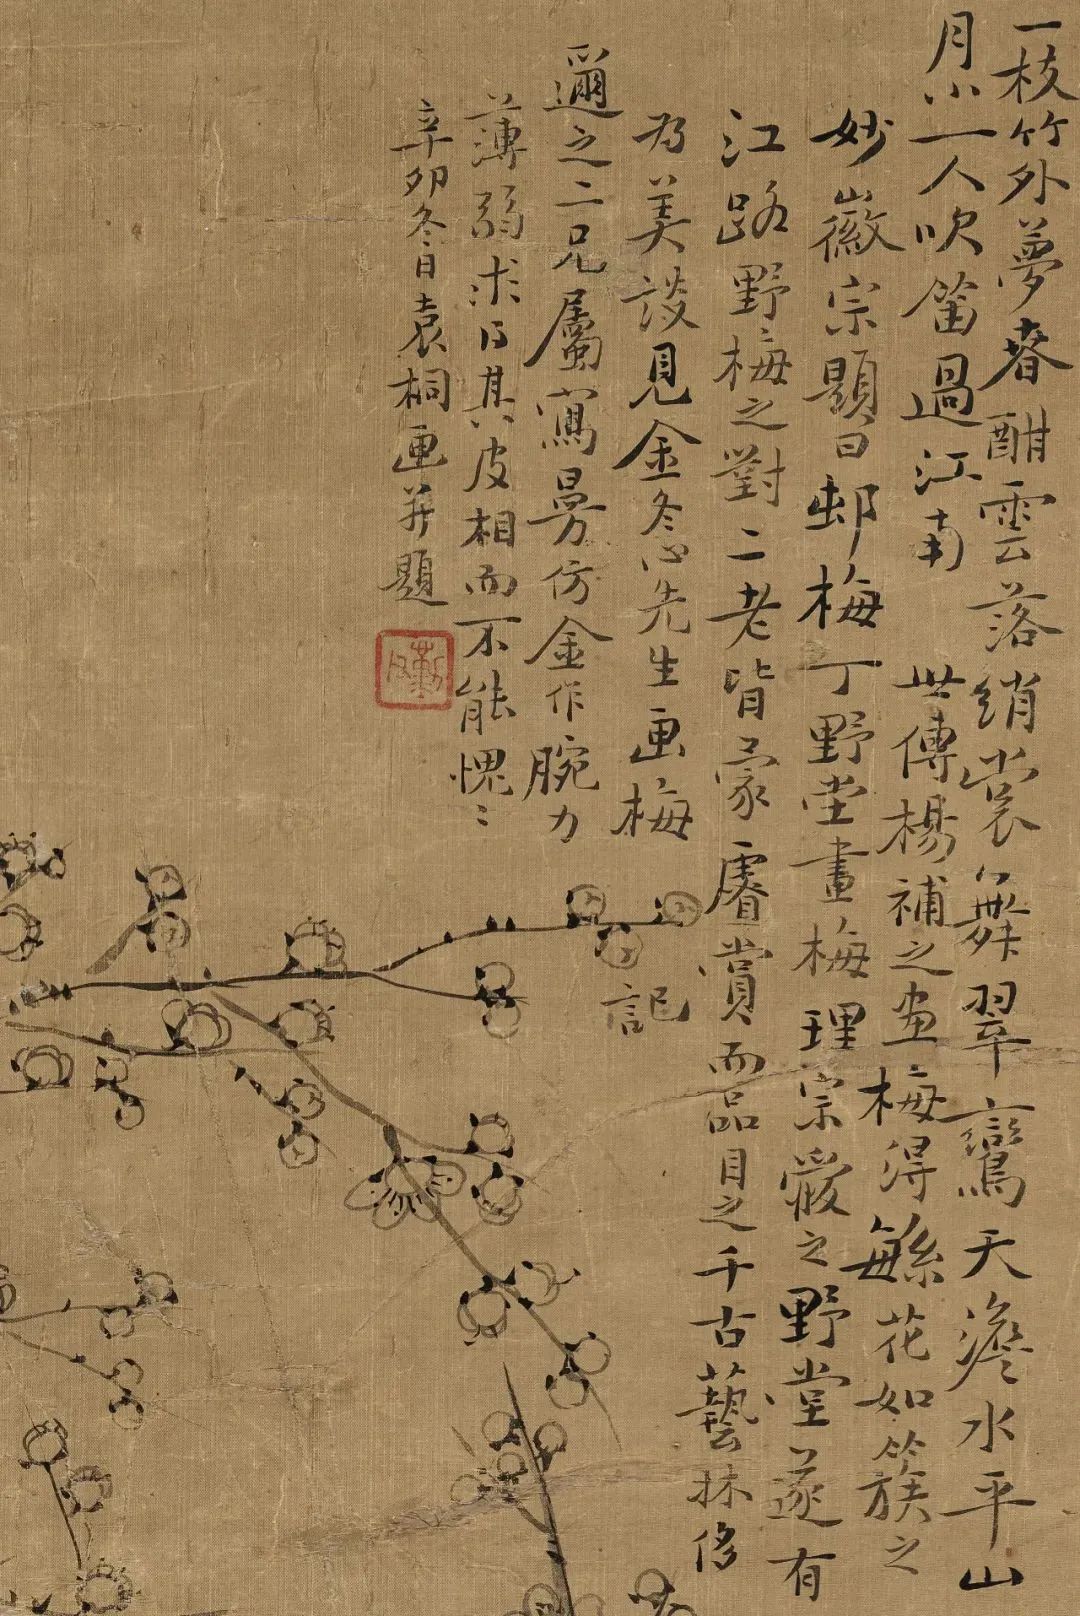 一枝竹外夢春酣雲落綃裳舞翠鸞天澹水平山
月小一人吹笛過江南
世傳楊補之畫梅得繇花如簇之
妙徽宗題曰邨梅丁野堂畫梅理宗愛之野堂遂有
江路野梅之對二老皆蒙睿賞而品目之千古藝林侈
為美談見金冬心先生画梅記
邇之二兄屬寫曼仿金作腕力
薄弱求得其皮相而不能愧〻
辛卯冬日袁桐画并題